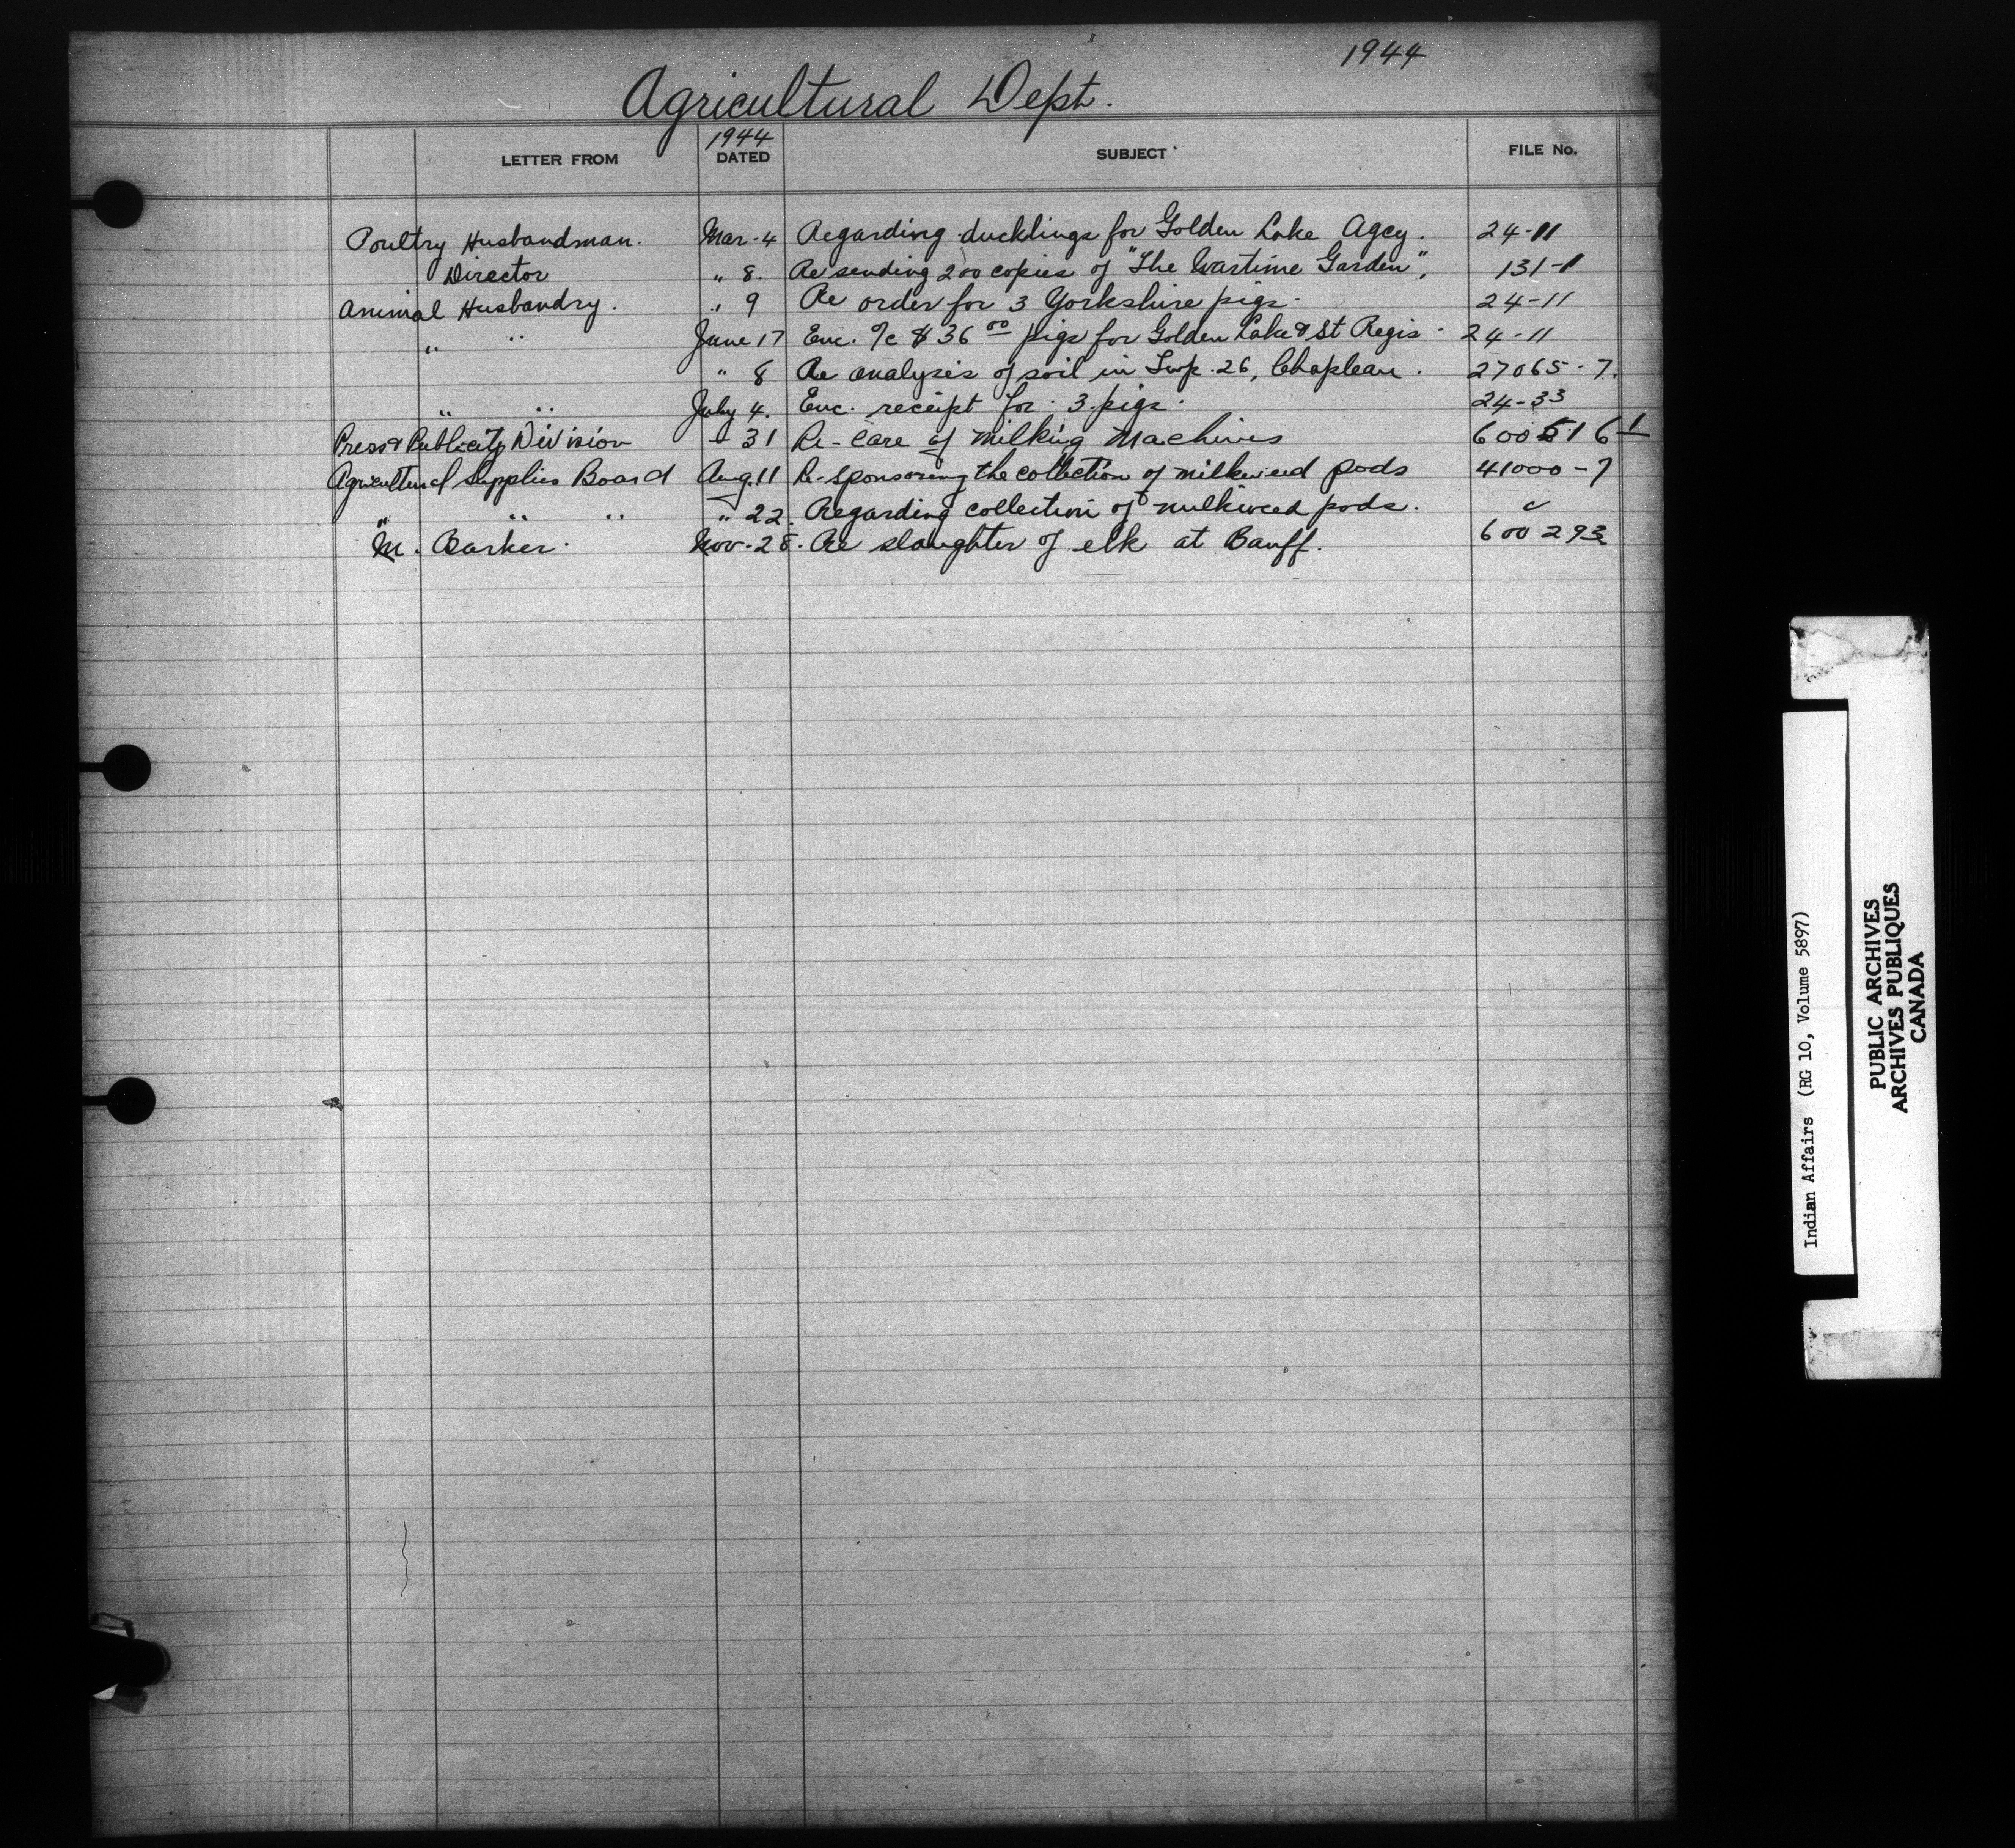 1944
Agricultural Dept.
LETTER FROM 1944 DATED SUBJECT FILE No.
Poultry Husbandman. Mar. 4 Regarding ducklings for Golden Lake Agcy. 24-11
Director " 8. Re sending 200 copies of "The Wartime Garden", 131-1
Animal Husbandry. " 9 Re order for 3 Yorkshire pigs. 24-11
" " June 17 Enc. %c $36 00 pigs for Golden Lake & St Regis. 24-11
" 8 Re analysis of soil in Twp. 26, Chapleau. 27065-7.
" " July 4. Enc. receipt for 3 pigs. 24-33
Press & Publicity Division - 31 Re-Care of Milking Machines 600516-1
Agricultural Supplies Board Aug. 11 Re-Sponsoring the collection of milkweed pods 41000-7
" " " " 22. Regarding collection of milkweed pods. "
M. Barker. Nov. 28. Re slaughter of elk at Banff. 600293
Indian Affairs (RG 10, Volume 5897)
PUBLIC ARCHIVES
ARCHIVES PUBLIQUES
CANADA